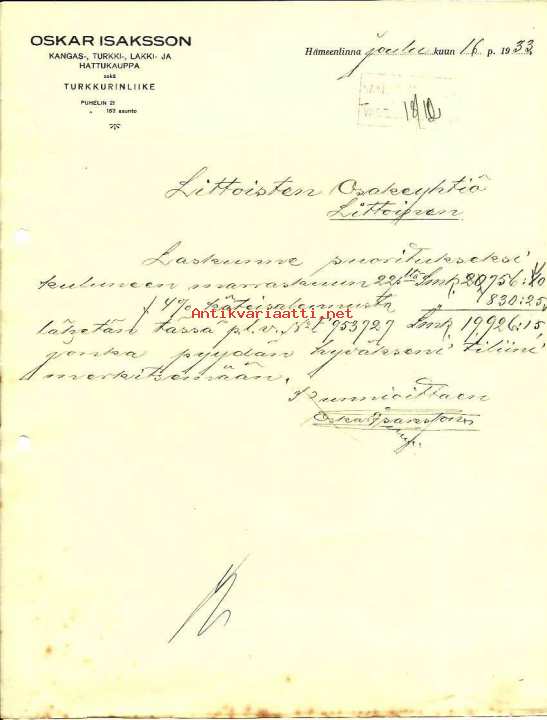 OSKAR ISAKSSON
KANGAS-, TURKKI-, LAKKI- JA
HATTUKAUPPA
sekä
TURKKURINLIIKE
PUHELIN 21
„ 163 asunto
Hämeenlinna joulu kuun 16 p. 1933
18/12
Littoisten Osakeyhtiö
Littoinen
Laskunne suoritukseksi
kuluneen marraskuun 22 ltä Smk 20756:40
./. 4% käteisalennusta 830:25
lähetän tässä p.l.v. No 953727 Smk 19926:15,
jonka pyydän hyväkseni tiliini
merkitsemään.
Kunnioittaen
Oskar Isaksson
Antikvariaatti.net